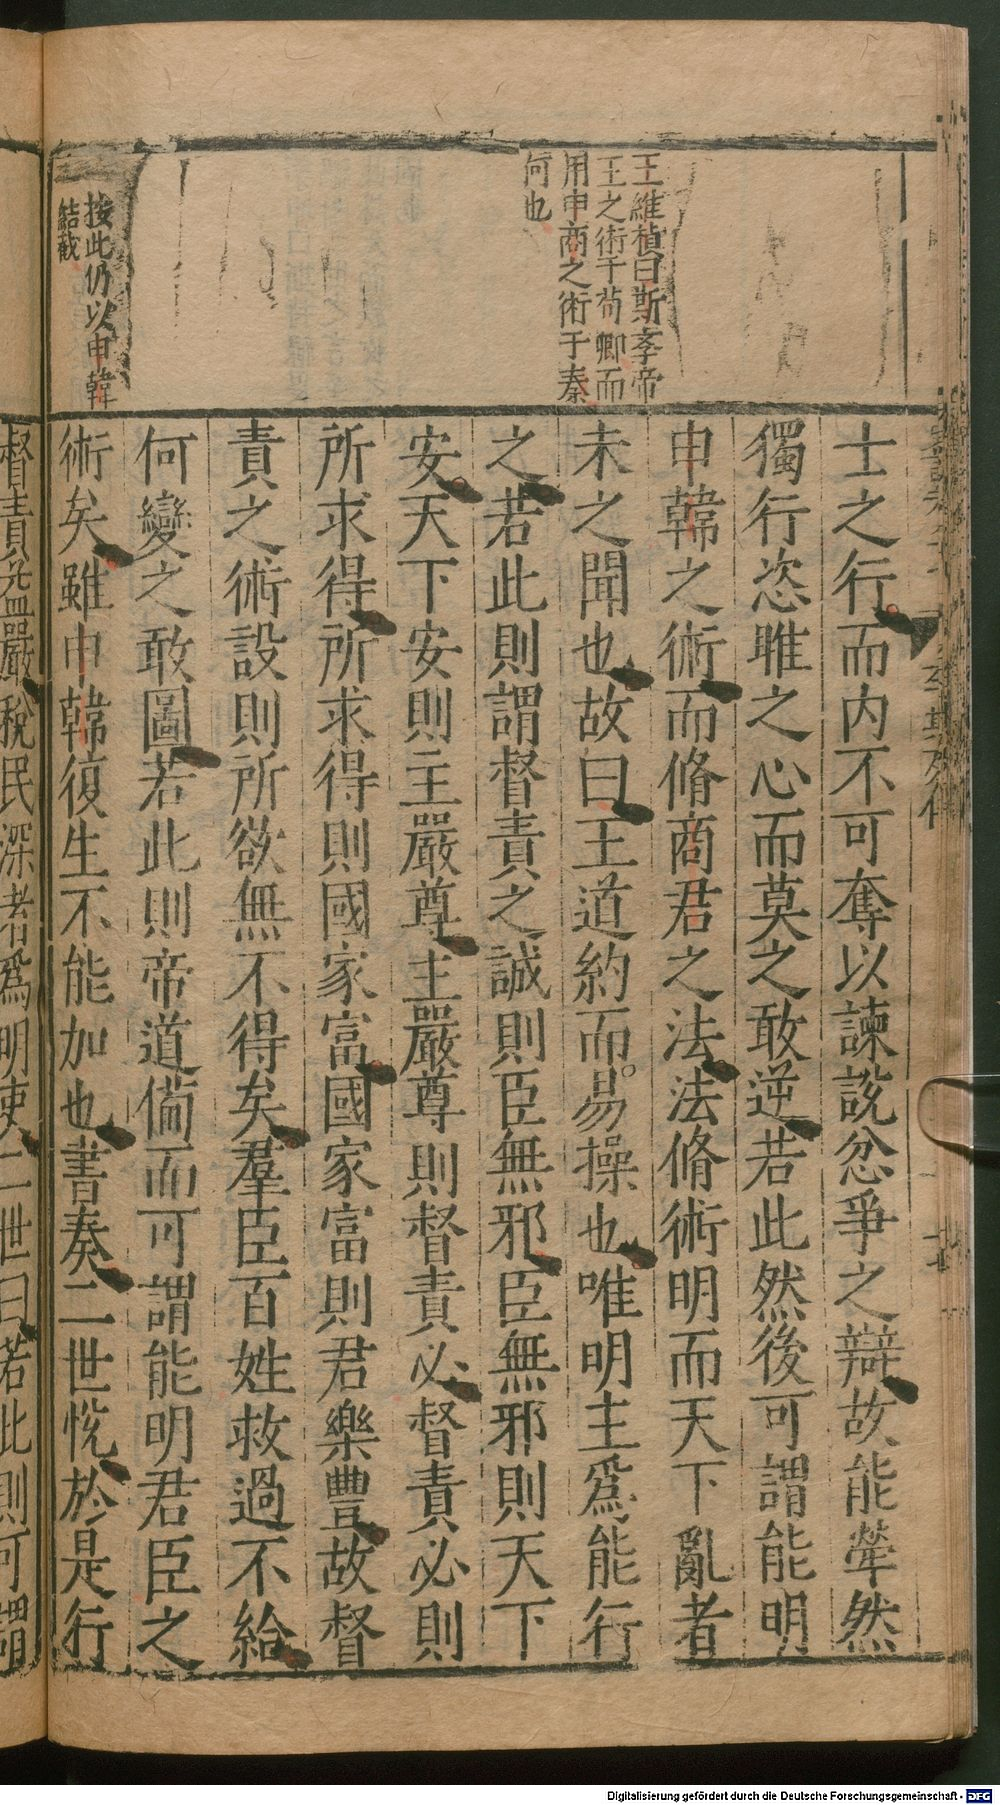 王維楨曰斯孝帝
王之術于荀卿而
用申商之術于秦
何也
按此仍以申韓
結截
士之行而内不可奪以諫說忿爭之辯故能犖然
獨行恣睢之心而莫之敢逆若此然後可謂能明
申韓之術而脩商君之法法脩術明而天下亂者
未之聞也故曰王道約而易操也唯明主爲能行
之若此則謂督責之誠則臣無邪臣無邪則天下
安天下安則主嚴尊主嚴尊則督責必督責必則
所求得所求得則國家富國家富則君樂豐故督
責之術設則所欲無不得矣羣臣百姓救過不給
何變之敢圖若此則帝道備而可謂能明君臣之
術矣雖申韓復生不能加也書奏二世悅於是行
督責益嚴稅民深者爲明吏二世曰若此則可謂
Digitalisierung gefördert durch die Deutsche Forschungsgemeinschaft - DFG